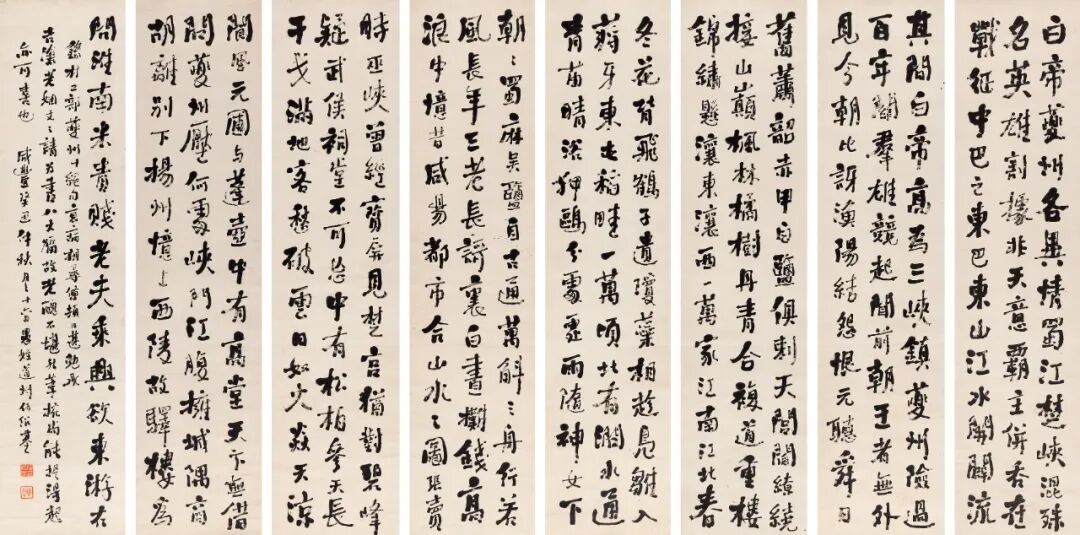 白帝夔州各異情蜀江楚峽混殊
名英雄割據非天意霸主併吞在
戰征中巴之東巴東山江水開闢流
其間白帝高為三峽鎮夔州險過
百牢關羣雄競起聞前朝王者無外
見今朝比訝漁陽結怨恨元聽舜日
舊蕭韶赤甲白鹽俱刺天閭閻繚繞
接山巔楓林橘樹丹青合複道重樓
錦繡懸瀼東瀼西一萬家江南江北春
冬花背飛鶴子遺瓊蕊相趁鳧雛入
蔣牙東屯稻畦一萬頃北有澗水通
青苗晴浴狎鷗分處處雨隨神女下
朝々蜀麻吳鹽自古通萬斛之舟行若
風長年三老長歌裏白晝攤錢高
浪中憶昔咸陽都市合山水之圖張賣
時巫峽曾經寶屏見楚宮猶對碧峰
疑武侯祠堂不可忘中有松柏參天長
干戈滿地客愁破雲日如火炎天涼
閬風元圃與蓬壺中有高堂天下無借
問夔州壓何處峽門江腹擁城隅商
胡離別下揚州憶上西陵故驛樓為
問淮南米貴賤老夫乘興欲東游右
錄杜工部夔州十絕句
請為書八大屏
亦可喜也 咸豐 秋月 十六日 愚姪道州何紹基